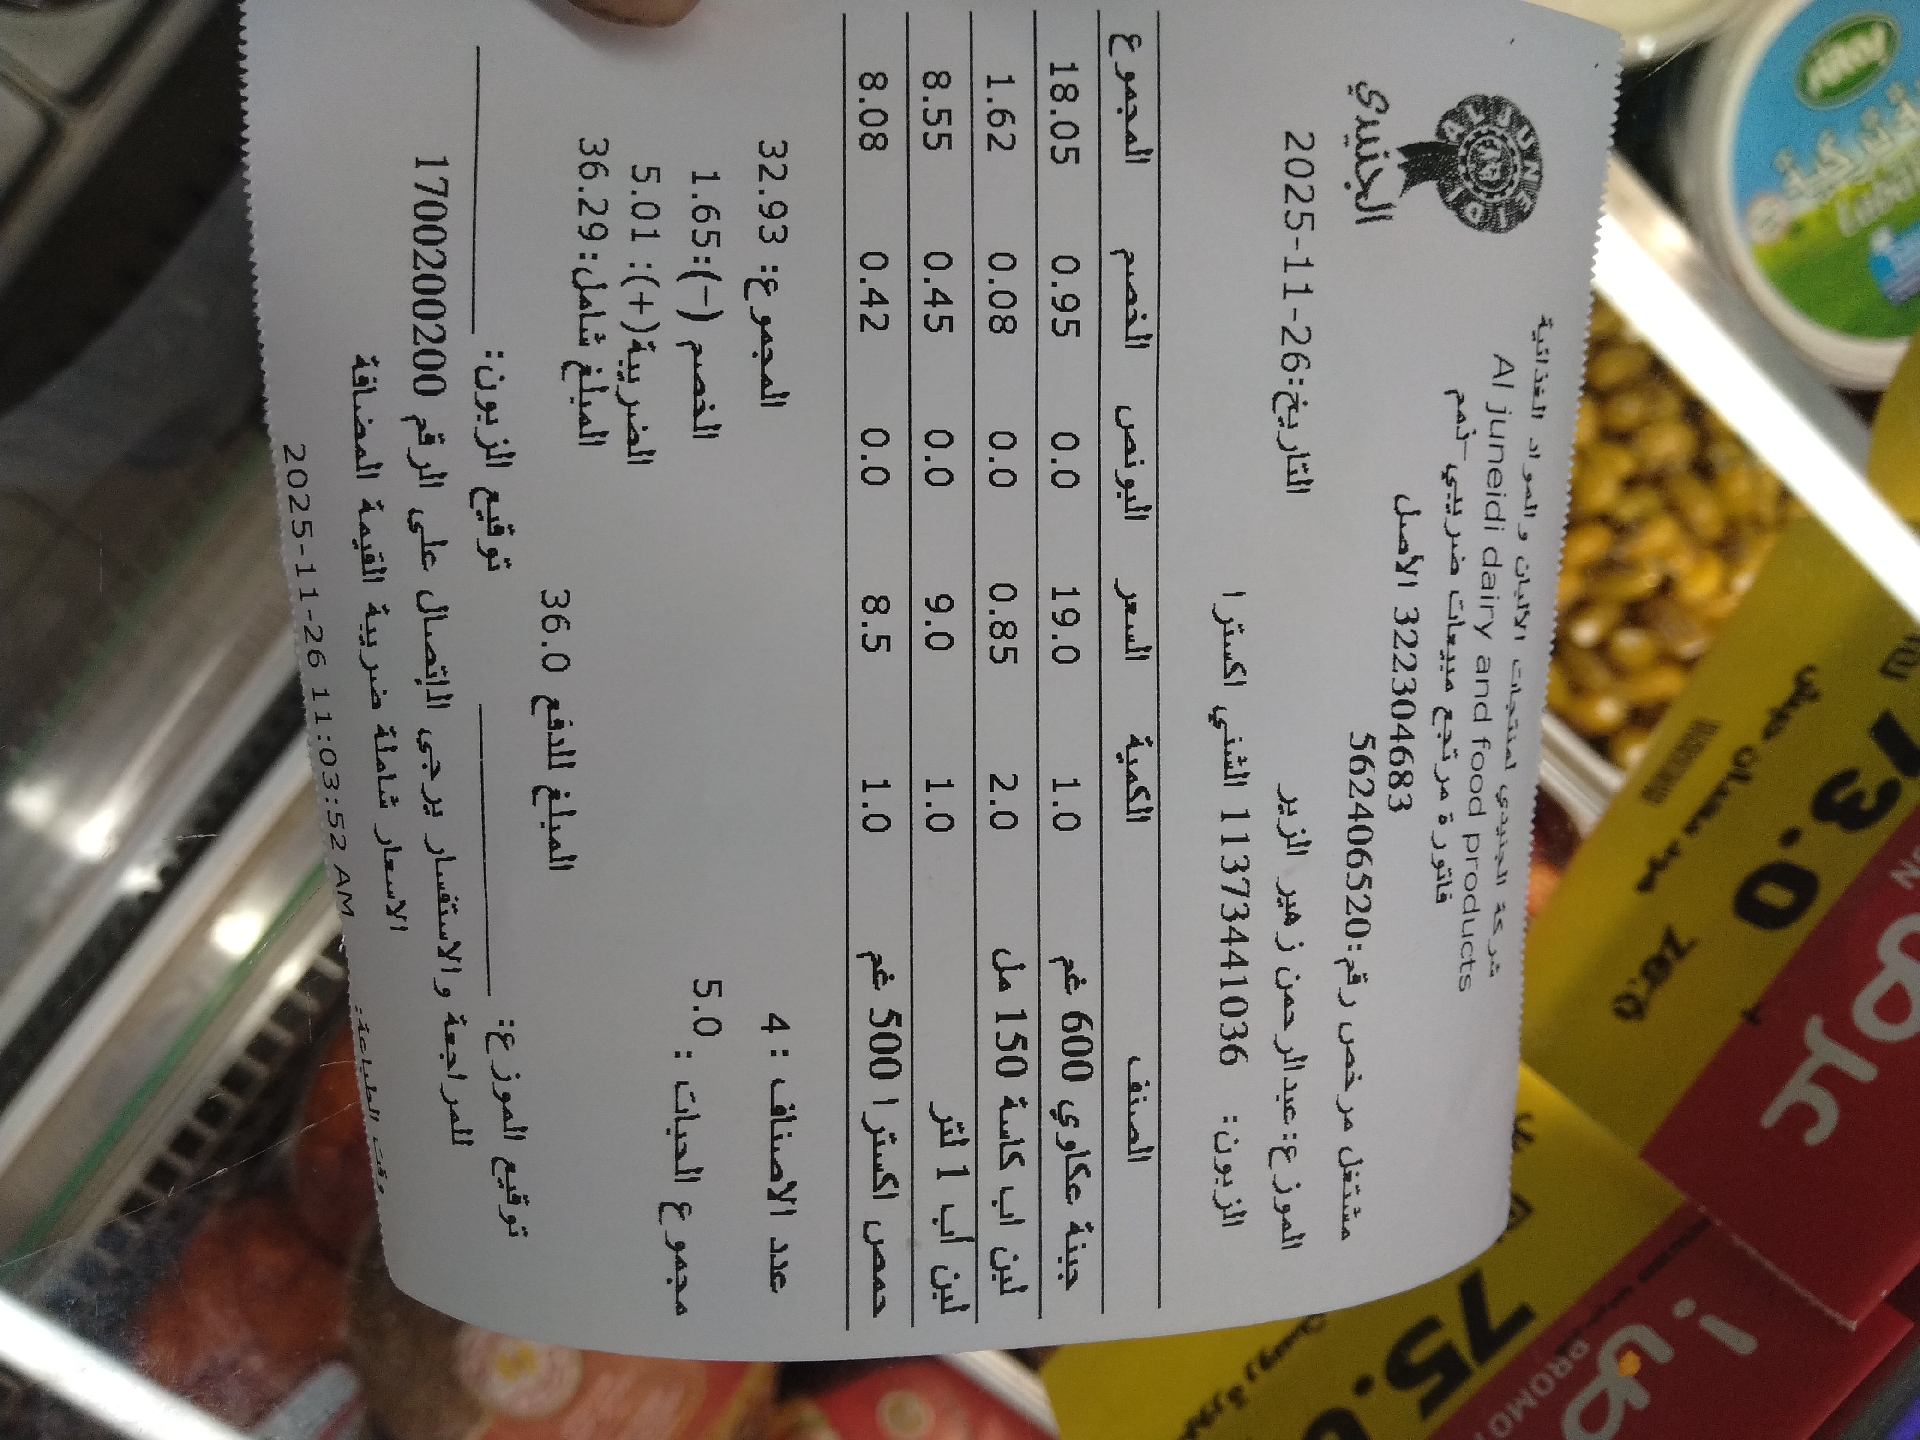 شركة الجنيدي لمنتجات الالبان والمواد الغذائية
Al juneidi dairy and food products
فاتورة مرتجع مبيعات ضريبي-ثمم
322304683 الأصل
AL JUNEIDI
الجنيدي
مشتغل مرخص رقم:562406520
الموزع:عبدالرحمن زهير الزير
التاريخ:2025-11-26
الزبون: 11373441036 الشني اكسترا
الصنف الكمية السعر البونص الخصم المجموع
جبنة عكاوي 600 غم 1.0 19.0 0.0 0.95 18.05
لبن اب كاسة 150 مل 2.0 0.85 0.0 0.08 1.62
لبن أب 1 لتر 1.0 9.0 0.0 0.45 8.55
حمص اكسترا 500 غم 1.0 8.5 0.0 0.42 8.08
عدد الاصناف : 4
المجموع: 32.93
مجموع الحبات : 5.0
الخصم (-):1.65
الضريبة(+): 5.01
المبلغ شامل:36.29
المبلغ للدفع 36.0
توقيع الموزع:
توقيع الزبون:
للمراجعة والاستفسار يرجى الاتصال على الرقم 1700200200
الاسعار شاملة ضريبة القيمة المضافة
وقت الطباعة:
2025-11-26 11:03:52 AM
73.0
76.0
75.0